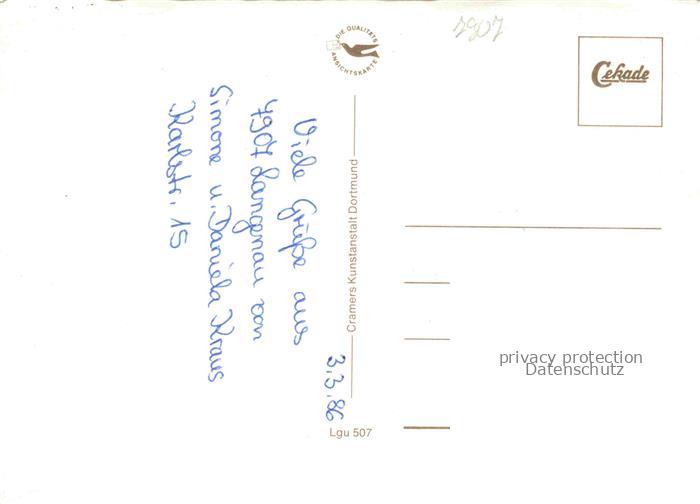 7907
DIE QUALITÄTS
ANSICHTSKARTE
Cekade
3.3.86
Viele Grüße aus
7907 Langenau von
Simone u. Daniela Kraus
Karlstr. 15
Cramers Kunstanstalt Dortmund
Lgu 507
privacy protection
Datenschutz